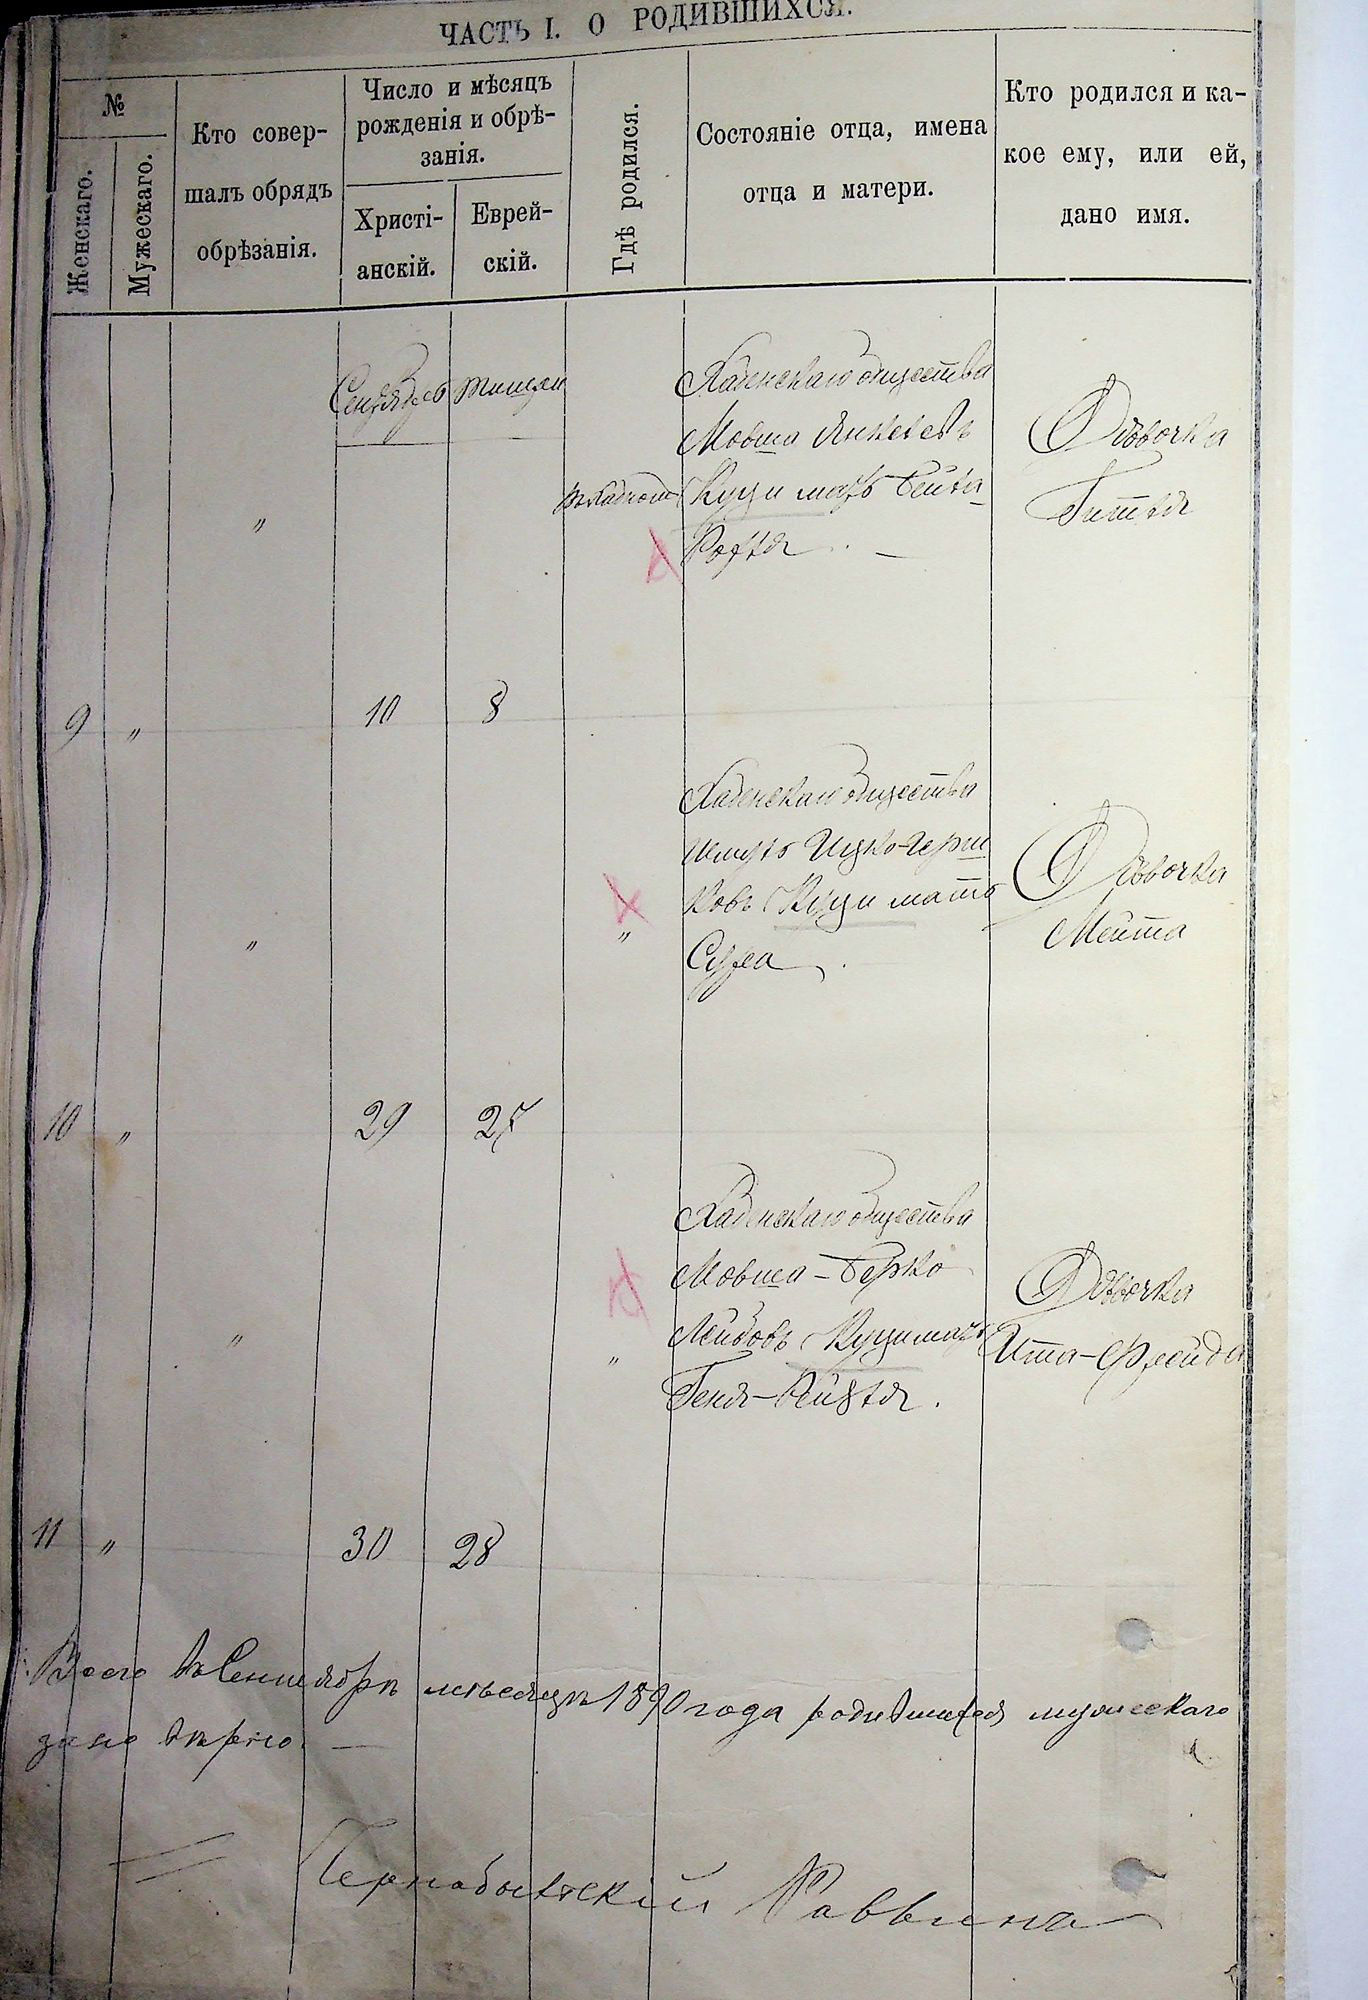 ЧАСТЬ I. О РОДИВШИХСЯ.
№
Женскаго.
Мужескаго.
Кто совер-
шалъ обрядъ
обрѣзанія.
Число и мѣсяцъ
рожденія и обрѣ-
занія.
Христі-
анскій.
Еврей-
скій.
Гдѣ родился.
Состояніе отца, имена
отца и матери.
Кто родился и ка-
кое ему, или ей,
дано имя.
Сентябрь Тишри
общества
Мовша Янкелевъ
Куци мать Бейла
Девочка
Гителя
"
9 " 10 8
общества
Шмуль Ицко-Герш
ковъ Куци мать
Сура
Девочка
Мейта
" "
10 " 29 27
общества
Мовша-Берко
Лейбовъ Куци мать
Геня-Рейзля.
Девочка
Ита-Фрейда
" "
11 " 30 28
Всего въ Сентябрѣ месяцѣ 1890 года родившихся мужескаго
вѣрно.
Чернобыльскій Раввинъ